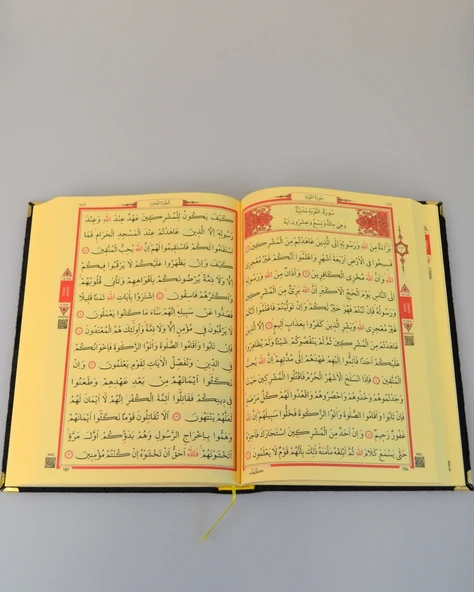 سُورَةُ التَّوْبَةِ
سُورَةُ التَّوْبَةِ مَدَنِيَّةٌ
وَهِيَ مِائَةٌ وَتِسْعٌ وَعِشْرُونَ اٰيَةً
بَرَٓاءَةٌ مِنَ اللّٰهِ وَرَسُولِهِ اِلَى الَّذِينَ عَاهَدْتُمْ مِنَ الْمُشْرِكِينَ
فَسِيحُوا فِي الْاَرْضِ اَرْبَعَةَ اَشْهُرٍ وَاعْلَمُوا اَنَّكُمْ غَيْرُ مُعْجِزِي
اللّٰهِ وَاَنَّ اللّٰهَ مُخْزِي الْكَافِرِينَ وَاَذَانٌ مِنَ اللّٰهِ وَرَسُولِهِ
اِلَى النَّاسِ يَوْمَ الْحَجِّ الْاَكْبَرِ اَنَّ اللّٰهَ بَرِيءٌ مِنَ الْمُشْرِكِينَ
وَرَسُولُهُ فَاِنْ تُبْتُمْ فَهُوَ خَيْرٌ لَكُمْ وَاِنْ تَوَلَّيْتُمْ فَاعْلَمُوا اَنَّكُمْ
غَيْرُ مُعْجِزِي اللّٰهِ وَبَشِّرِ الَّذِينَ كَفَرُوا بِعَذَابٍ اَلِيمٍ اِلَّا الَّذِينَ
عَاهَدْتُمْ مِنَ الْمُشْرِكِينَ ثُمَّ لَمْ يَنْقُصُوكُمْ شَيْـًٔا وَلَمْ يُظَاهِرُوا
عَلَيْكُمْ اَحَدًا فَاَتِمُّوا اِلَيْهِمْ عَهْدَهُمْ اِلٰى مُدَّتِهِمْ اِنَّ اللّٰهَ يُحِبُّ
الْمُتَّقِينَ فَاِذَا انْسَلَخَ الْاَشْهُرُ الْحُرُمُ فَاقْتُلُوا الْمُشْرِكِينَ حَيْثُ
وَجَدْتُمُوهُمْ وَخُذُوهُمْ وَاحْصُرُوهُمْ وَاقْعُدُوا لَهُمْ كُلَّ مَرْصَدٍ
فَاِنْ تَابُوا وَاَقَامُوا الصَّلٰوةَ وَاٰتَوُا الزَّكٰوةَ فَخَلُّوا سَبِيلَهُمْ اِنَّ اللّٰهَ
غَفُورٌ رَحِيمٌ وَاِنْ اَحَدٌ مِنَ الْمُشْرِكِينَ اسْتَجَارَكَ فَاَجِرْهُ
حَتّٰى يَسْمَعَ كَلَامَ اللّٰهِ ثُمَّ اَبْلِغْهُ مَأْمَنَهُ ذٰلِكَ بِاَنَّهُمْ قَوْمٌ لَا يَعْلَمُونَ
كَيْفَ
اَلْجُزْءُ الْعَاشِرُ
كَيْفَ يَكُونُ لِلْمُشْرِكِينَ عَهْدٌ عِنْدَ اللّٰهِ وَعِنْدَ
رَسُولِهِ اِلَّا الَّذِينَ عَاهَدْتُمْ عِنْدَ الْمَسْجِدِ الْحَرَامِ فَمَا
اسْتَقَامُوا لَكُمْ فَاسْتَقِيمُوا لَهُمْ اِنَّ اللّٰهَ يُحِبُّ الْمُتَّقِينَ
كَيْفَ وَاِنْ يَظْهَرُوا عَلَيْكُمْ لَا يَرْقُبُوا فِيكُمْ
اِلًّا وَلَا ذِمَّةً يُرْضُونَكُمْ بِاَفْوَاهِهِمْ وَتَأْبٰى قُلُوبُهُمْ
وَاَكْثَرُهُمْ فَاسِقُونَ اِشْتَرَوْا بِاٰيَاتِ اللّٰهِ ثَمَنًا قَلِيلًا
فَصَدُّوا عَنْ سَبِيلِهِ اِنَّهُمْ سَٓاءَ مَا كَانُوا يَعْمَلُونَ
لَا يَرْقُبُونَ فِي مُؤْمِنٍ اِلًّا وَلَا ذِمَّةً وَاُولٰٓئِكَ هُمُ الْمُعْتَدُونَ
فَاِنْ تَابُوا وَاَقَامُوا الصَّلٰوةَ وَاٰتَوُا الزَّكٰوةَ فَاِخْوَانُكُمْ
فِي الدِّينِ وَنُفَصِّلُ الْاٰيَاتِ لِقَوْمٍ يَعْلَمُونَ وَاِنْ
نَكَثُوا اَيْمَانَهُمْ مِنْ بَعْدِ عَهْدِهِمْ وَطَعَنُوا
فِي دِينِكُمْ فَقَاتِلُوا اَئِمَّةَ الْكُفْرِ اِنَّهُمْ لَا اَيْمَانَ لَهُمْ
لَعَلَّهُمْ يَنْتَهُونَ اَلَا تُقَاتِلُونَ قَوْمًا نَكَثُوا اَيْمَانَهُمْ
وَهَمُّوا بِاِخْرَاجِ الرَّسُولِ وَهُمْ بَدَؤُكُمْ اَوَّلَ مَرَّةٍ
اَتَخْشَوْنَهُمْ فَاللّٰهُ اَحَقُّ اَنْ تَخْشَوْهُ اِنْ كُنْتُمْ مُؤْمِنِينَ